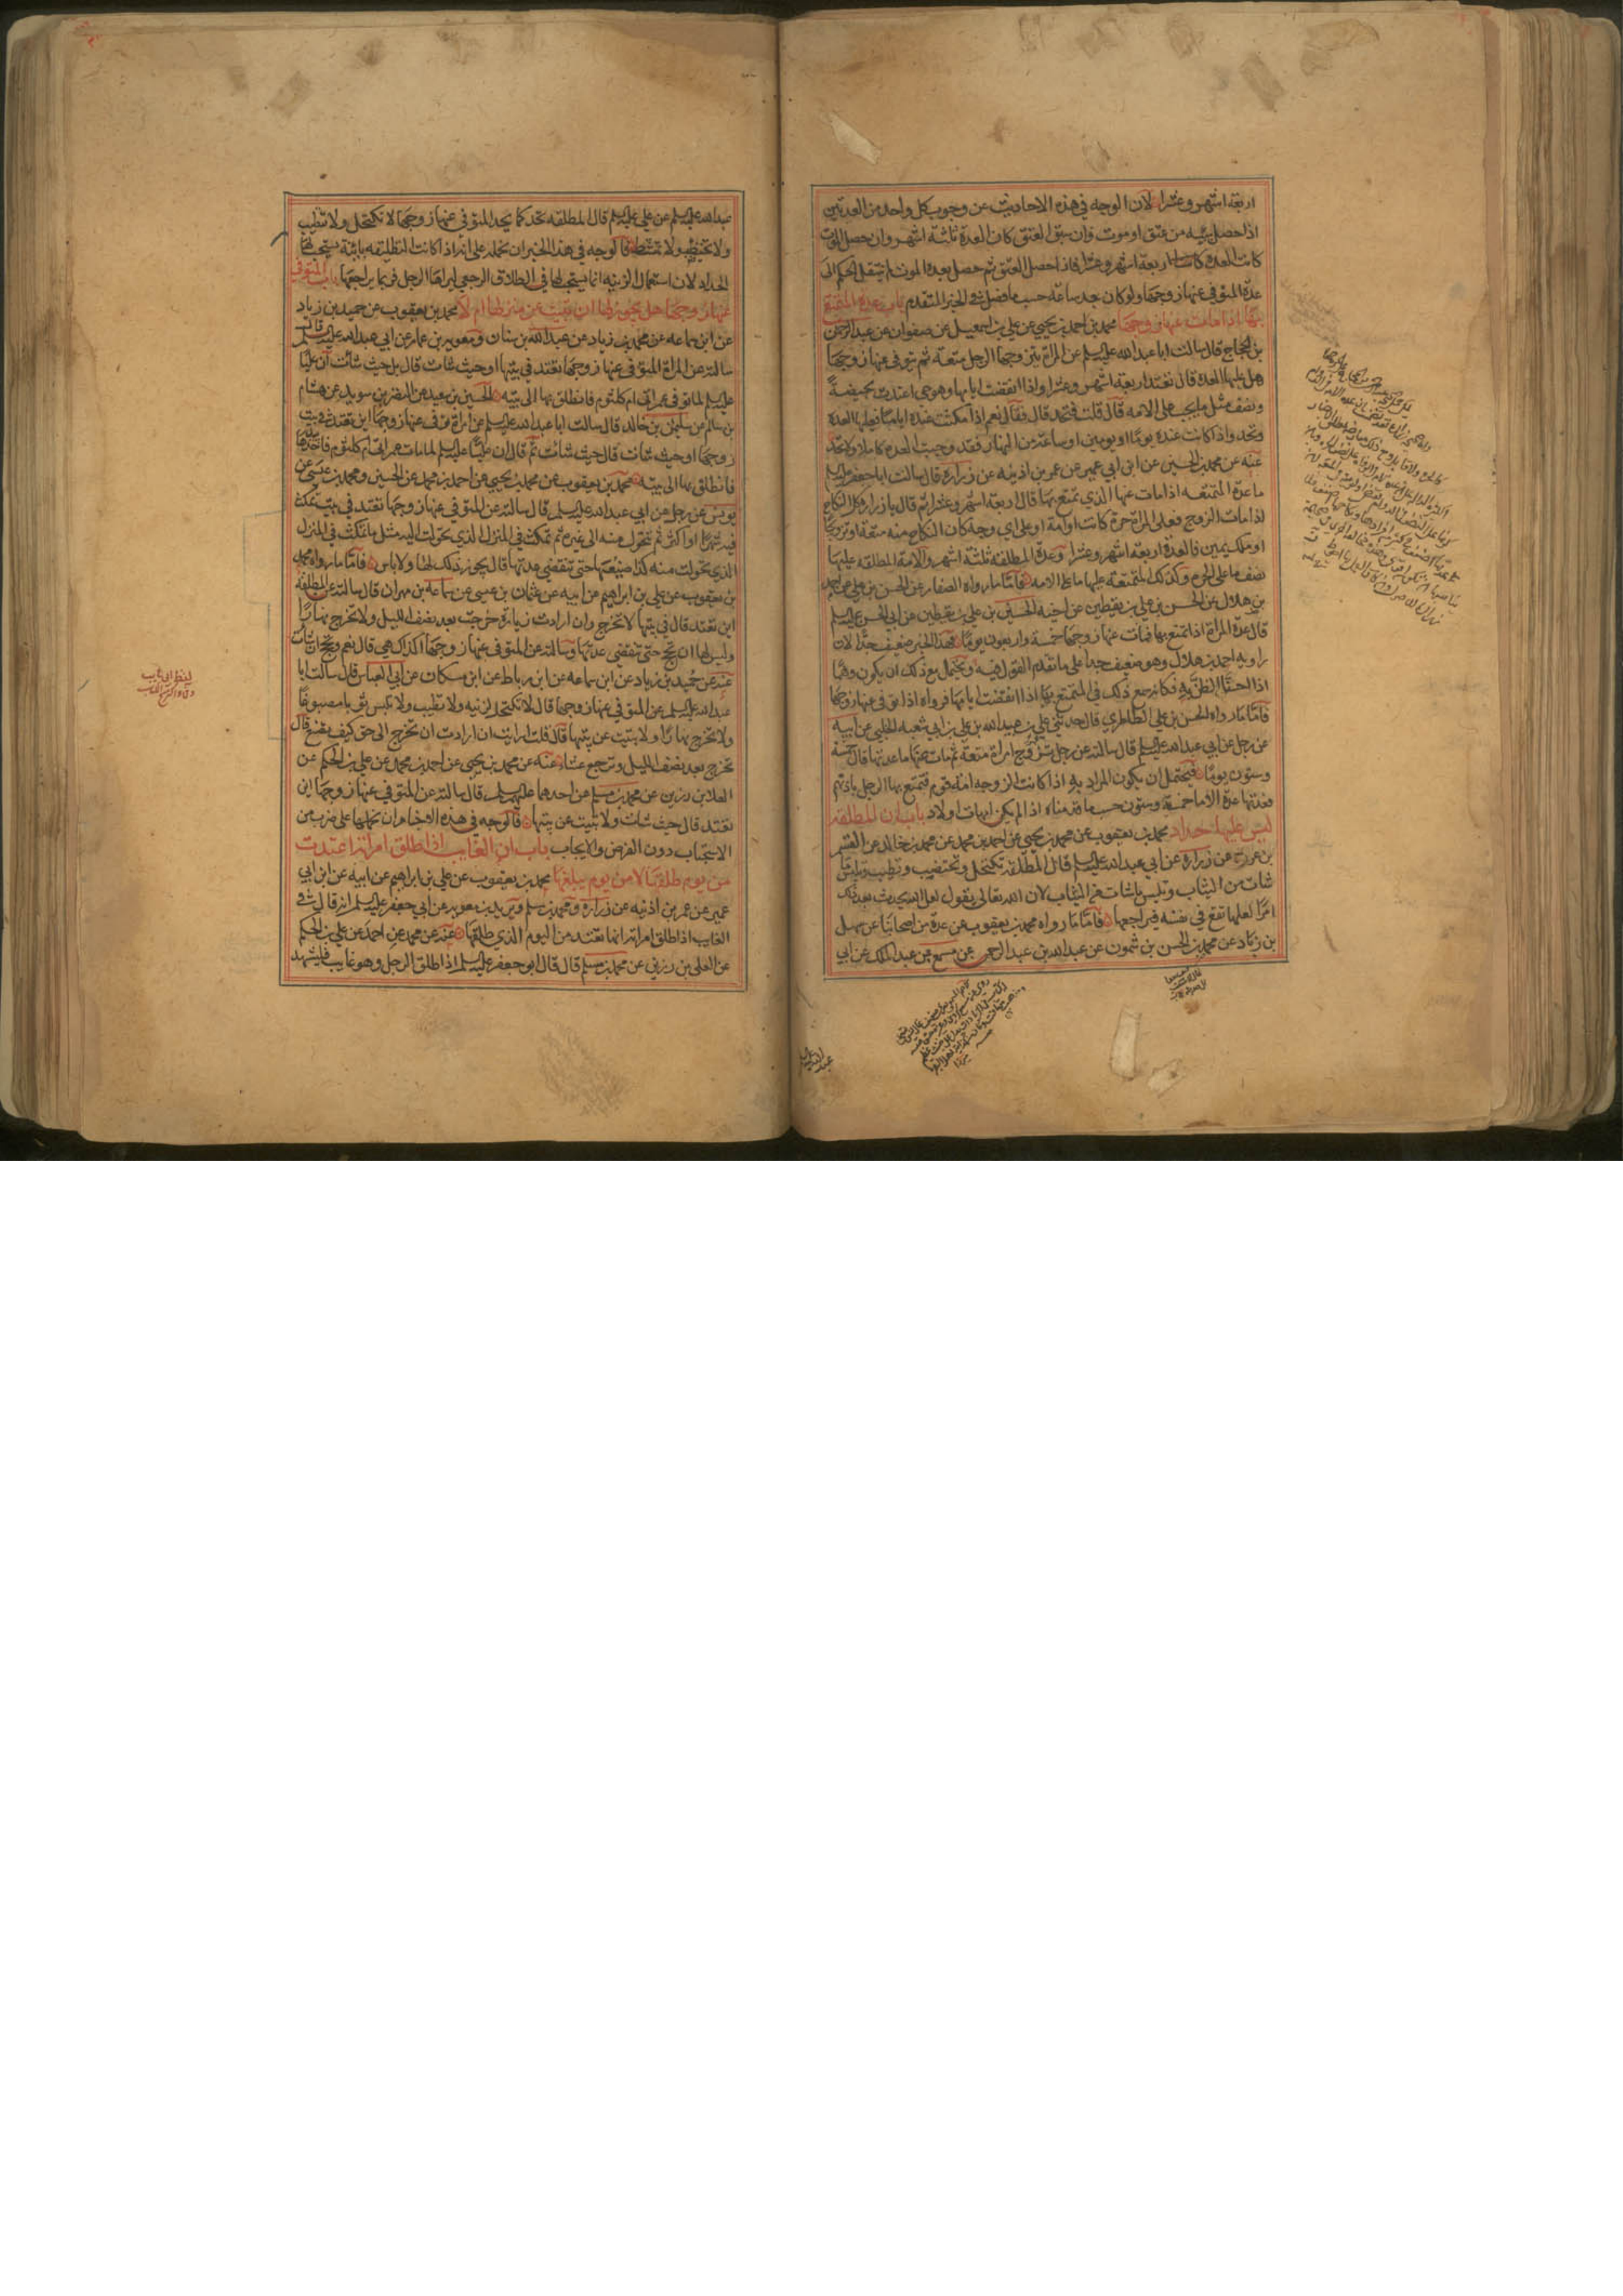 اربعة اشهر وعشرا لان الوجه في هذه الاحاديث عن وجوب كل واحد من العدتين
اذا حصل سببه من عتق او موت وان سبق العتق كان العدة ثلثة اشهر وان حصل الموت
كانت العدة كانت اربعة اشهر وعشرا فاذا حصل العتق ثم حصل بعده الموت انتقل الحكم الى
عدة المتوفى عنها زوجها ولو كان بعد ساعة حسب ما فصل في الخبر المتقدم باب عدة المتمتع
بها اذا مات عنها زوجها محمد بن احمد بن يحيى عن علي بن اسمعيل عن صفوان عن عبد الرحمن
بن الحجاج قال سالت ابا عبد الله عليه السلم عن المراة يتزوجها الرجل متعة ثم يتوفى عنها زوجها
هل عليها العدة قال تعتد اربعة اشهر وعشرا واذا انقضت ايامها وهو حي اعتدت بحيضة
ونصف مثل ما يجب على الامة قال قلت فتحد قال فقال نعم اذا مكثت عنده اياما فعليها العدة
وتحد واذا كانت عنده يوما او يومين او ساعة من النهار فقد وجبت العدة كاملا ولا تحد
عنه عن محمد بن الحسين عن ابن ابي عمير عن عمر بن اذينه عن زرارة قال سالت ابا جعفر عليه السلم
ما عدة المتمتعه اذا مات عنها الذي تمتع بها قال اربعة اشهر وعشرا ثم قال يا زرارة كل النكاح
اذا مات الزوج فعلى المراة حرة كانت او امة او على اي وجه كان النكاح منه متعة او تزويجا
او ملك يمين فالعدة اربعة اشهر وعشرا وعدة المطلقة ثلثة اشهر والامة المطلقه عليها
نصف ما على الحرة وكذلك المتمتعة عليها ما على الامه فاما ما رواه الصفار عن الحسن بن علي عن احمد
بن هلال عن الحسن بن علي بن يقطين عن اخيه الحسين بن علي بن يقطين عن ابي الحسن عليه السلم
قال عدة المراة اذا تمتع بها فمات عنها زوجها خمسة واربعون يوما فهذا الخبر ضعيف جدا لان
راويه احمد بن هلال وهو ضعيف جدا على ما تقدم القول فيه ويحتمل مع ذلك ان يكون وهما
اذا احسنا الظن به فكانه سمع ذلك في المتمتع بها اذا انقضت ايامها فرواه اذا توفى عنها زوجها
فاما ما رواه الحسن بن علي الطاطري قال حدثني علي بن عبيد الله بن علي بن ابي شعبه الحلبي عن ابيه
عن رجل عن ابي عبد الله عليه السلم قال سالته عن رجل تزوج امراة متعة ثم مات عنها ما عدتها قال خمسة
وستون يوما فيحتمل ان يكون المراد به اذا كانت الزوجه امة قوم فتمتع بها الرجل باذنهم
فعدتها عدة الاما خمسة وستون حسب ما قدمناه اذا لم يكن امهات اولاد باب ان المطلقة
ليس عليها حداد محمد بن يعقوب عن محمد بن يحيى عن احمد بن محمد عن محمد بن خالد عن القسم
بن عروة عن زرارة عن ابي عبد الله عليه السلم قال المطلقة تكتحل وتختضب وتطيب وتلبس ما
شات من الثياب وتلبس ما شات من الثياب لان الله تعالى يقول لعل الله يحدث بعد ذلك
امرا لعلها تقع في نفسه فيراجعها فاما ما رواه محمد بن يعقوب عن عدة من اصحابنا عن سهل
بن زياد عن محمد بن الحسن بن شمون عن عبد الله بن عبد الرحمن عن مسمع بن عبد الملك عن ابي
عبد الله عليه السلم عن علي عليه السلم قال المطلقه تحد كما يحد المتوفى عنها زوجها لا تكتحل ولا تطيب
ولا تختضب ولا تمتشط فالوجه في هذا الخبر ان نحمله على انه اذا كانت التطليقه بائنة يستحب لها
الحداد لان استعمال الزينه انما يستحب لها في الطلاق الرجعي ليراها الرجل فربما يراجعها باب المتوفى
عنها زوجها هل يجوز لها ان تبيت عن منزلها ام لا محمد بن يعقوب عن حميد بن زياد
عن ابن سماعه عن محمد بن زياد عن عبد الله بن سنان ومعويه بن عمار عن ابي عبد الله عليه السلم قال
سالته عن المراة المتوفى عنها زوجها تعتد في بيتها او حيث شات قال بل حيث شات ان عليا
عليه السلم لما توفى عمر اتى ام كلثوم فانطلق بها الى بيته الحسين بن سعيد عن النضر بن سويد عن هشام
بن سالم عن سليمن بن خالد قال سالت ابا عبد الله عليه السلم عن امراة توفى عنها زوجها اين تعتد في بيت
زوجها او حيث شات قال حيث شات ثم قال ان عليا عليه السلم لما مات عمر اتى ام كلثوم فاخذ بيدها
فانطلق بها الى بيته محمد بن يعقوب عن محمد بن يحيى عن احمد بن محمد عن الحسين ومحمد بن عيسى عن
يونس عن رجل عن ابي عبد الله عليه السلم قال سالته عن المتوفى عنها زوجها تعتد في بيت تمكث
فيه شهرا او اكثر ثم تتحول منه الى غيره ثم تمكث في المنزل الذي تحولت اليه مثل ما تمكث في المنزل
الذي تحولت منه كذا صنيعها حتى تنقضي عدتها قال يجوز ذلك لها ولا باس فاما ما رواه محمد
بن يعقوب عن علي بن ابراهيم عن ابيه عن عثمان بن عيسى عن سماعه بن مهران قال سالته عن المطلقه
اين تعتد قال في بيتها لا تخرج وان ارادت زيارة خرجت بعد نصف الليل ولا تخرج نهارا
وليس لها ان تحج حتى تنقضي عدتها وسالته عن المتوفى عنها زوجها اكذلك هي قال نعم وتحج ان شات
عنه عن حميد بن زياد عن ابن سماعه عن ابن رباط عن ابن مسكان عن ابي العباس قال سالت ابا
عبد الله عليه السلم عن المتوفى عنها زوجها قال لا تكتحل لزينه ولا تطيب ولا تلبس ثوبا مصبوغا
ولا تخرج نهارا ولا تبيت عن بيتها قال قلت ارايت ان ارادت ان تخرج الى حق كيف تصنع قال
تخرج بعد نصف الليل وترجع عشاء عنه عن محمد بن يحيى عن احمد بن محمد عن علي بن الحكم عن
العلا بن رزين عن محمد بن مسلم عن احدهما عليهما السلم قال سالته عن المتوفى عنها زوجها اين
تعتد قال حيث شات ولا تبيت عن بيتها فالوجه في هذه الاخبار ان نحملها على ضرب من
الاستحباب دون الفرض والايجاب باب ان الغايب اذا طلق امراته اعتدت
من يوم طلقها لا من يوم يبلغها محمد بن يعقوب عن علي بن ابراهيم عن ابيه عن ابن ابي
عمير عن عمر بن اذينه عن زرارة ومحمد بن مسلم وبريد بن معويه عن ابي جعفر عليه السلم انه قال في
الغايب اذا طلق امراته انها تعتد من اليوم الذي طلقها عنه عن محمد عن احمد عن علي بن الحكم
عن العلى بن رزين عن محمد بن مسلم قال قال ابو جعفر عليه السلم اذا طلق الرجل وهو غايب فليشهد